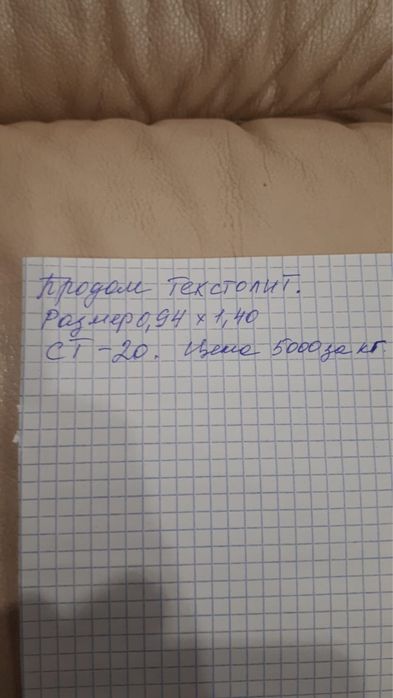 Продам текстолит.
Размер 0,94 х 1,40
СТ-20. Цена 5000 за кг